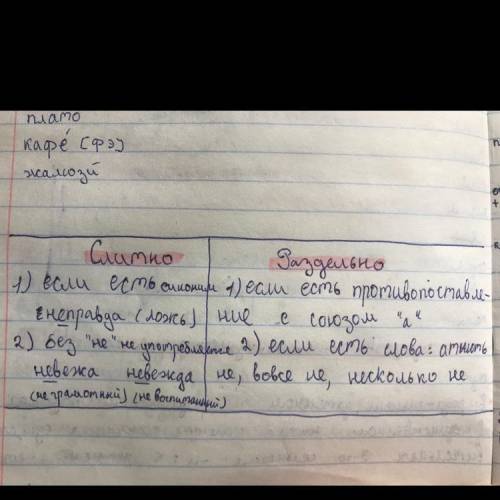 плато
кафе́ [фэ]
жалюзи́
Слитно
1) если есть синоним
неправда (ложь)
2) Без "не" не употребляется
невежа невежда
(не грамотный) (не воспитанный)
Раздельно
1) если есть противопоставле-
ние с союзом "а"
2) если есть слова: отнюдь
не, вовсе не, несколько не